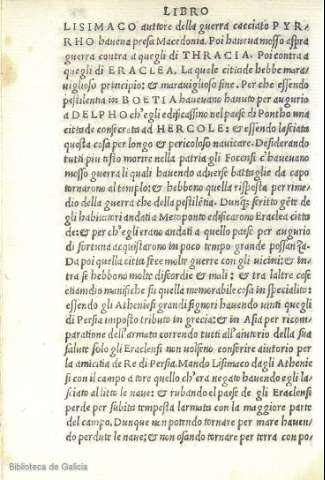 LIBRO
LISIMACO auttore della guerra cacciato PYR-
RHO haueua presa Macedonia. Poi haueua mosso aspra
guerra contra a quegli di THRACIA. Poi contra a
quegli di ERACLEA. La quele cittade hebbe mara
uiglioso principio: & marauiglioso fine. Per che essendo
pestilentia in BOETIA haueuano hauuto per augurio
a DELPHO ch'egli edificassino nel paese di Ponto una
cittade consecrata ad HERCOLE: & essendo lasciata
questa cosa per longo & pericoloso nauicare. Desiderando
tutti piu tosto morire nella patria gli Focensi c'haueuano
mosso guerra li quali hauendo aduerse battaglie da capo
tornarono al templo: & hebbono quella risposta per rime
dio della guerra che della pestilẽtia. Dunq; scritto gẽte de
gli habitatori andati a Metoponto edificarono Eraclea citta
de: & per ch'eglierano andati a quello paese per augurio
di fortuna acquistarono in poco tempo grande possanza.
Da poi quella citta fece molte guerre con gli uicini: & in
tra se hebbono molte discordie & mali: & tra laltre cose
etiandio manifiche fu quella memorabile cosa in specialito:
essendo gli Atheniesi grandi signori hauendo uinti quegli
di Persia imposto tributo in grecia: & in Asia per ricom-
paratione dell'armata correndo tutti all'aiutorio della sua
salute solo gli Eraclensi non uolseno conferire aiutorio per
la amicitia de Re di Persia. Mando Lisimaco dagli Athenie
si con il campo a tore quello ch'era negato hauendo egli la-
sciato al lito le naue: & rubando el paese de gli Eraclensi
perde per subita tempesta larmata con la maggiore parte
del campo. Dunque non potendo tornare per mare hauen-
do perdute le naue: & non osando tornare per terra con po-
Biblioteca de Galicia